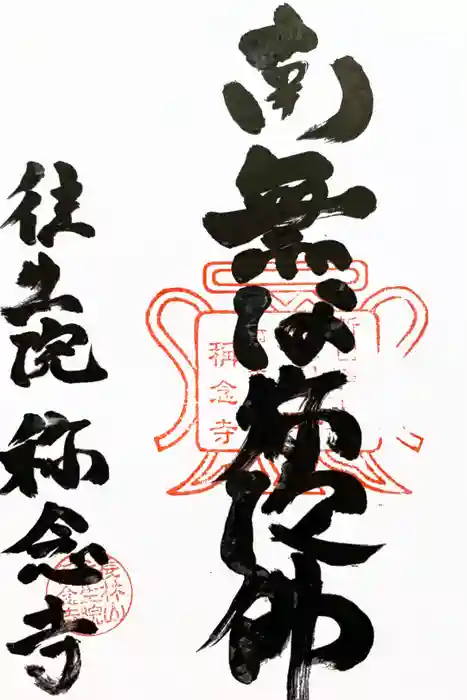 南無阿弥陀佛
往生院 称念寺
稱念寺